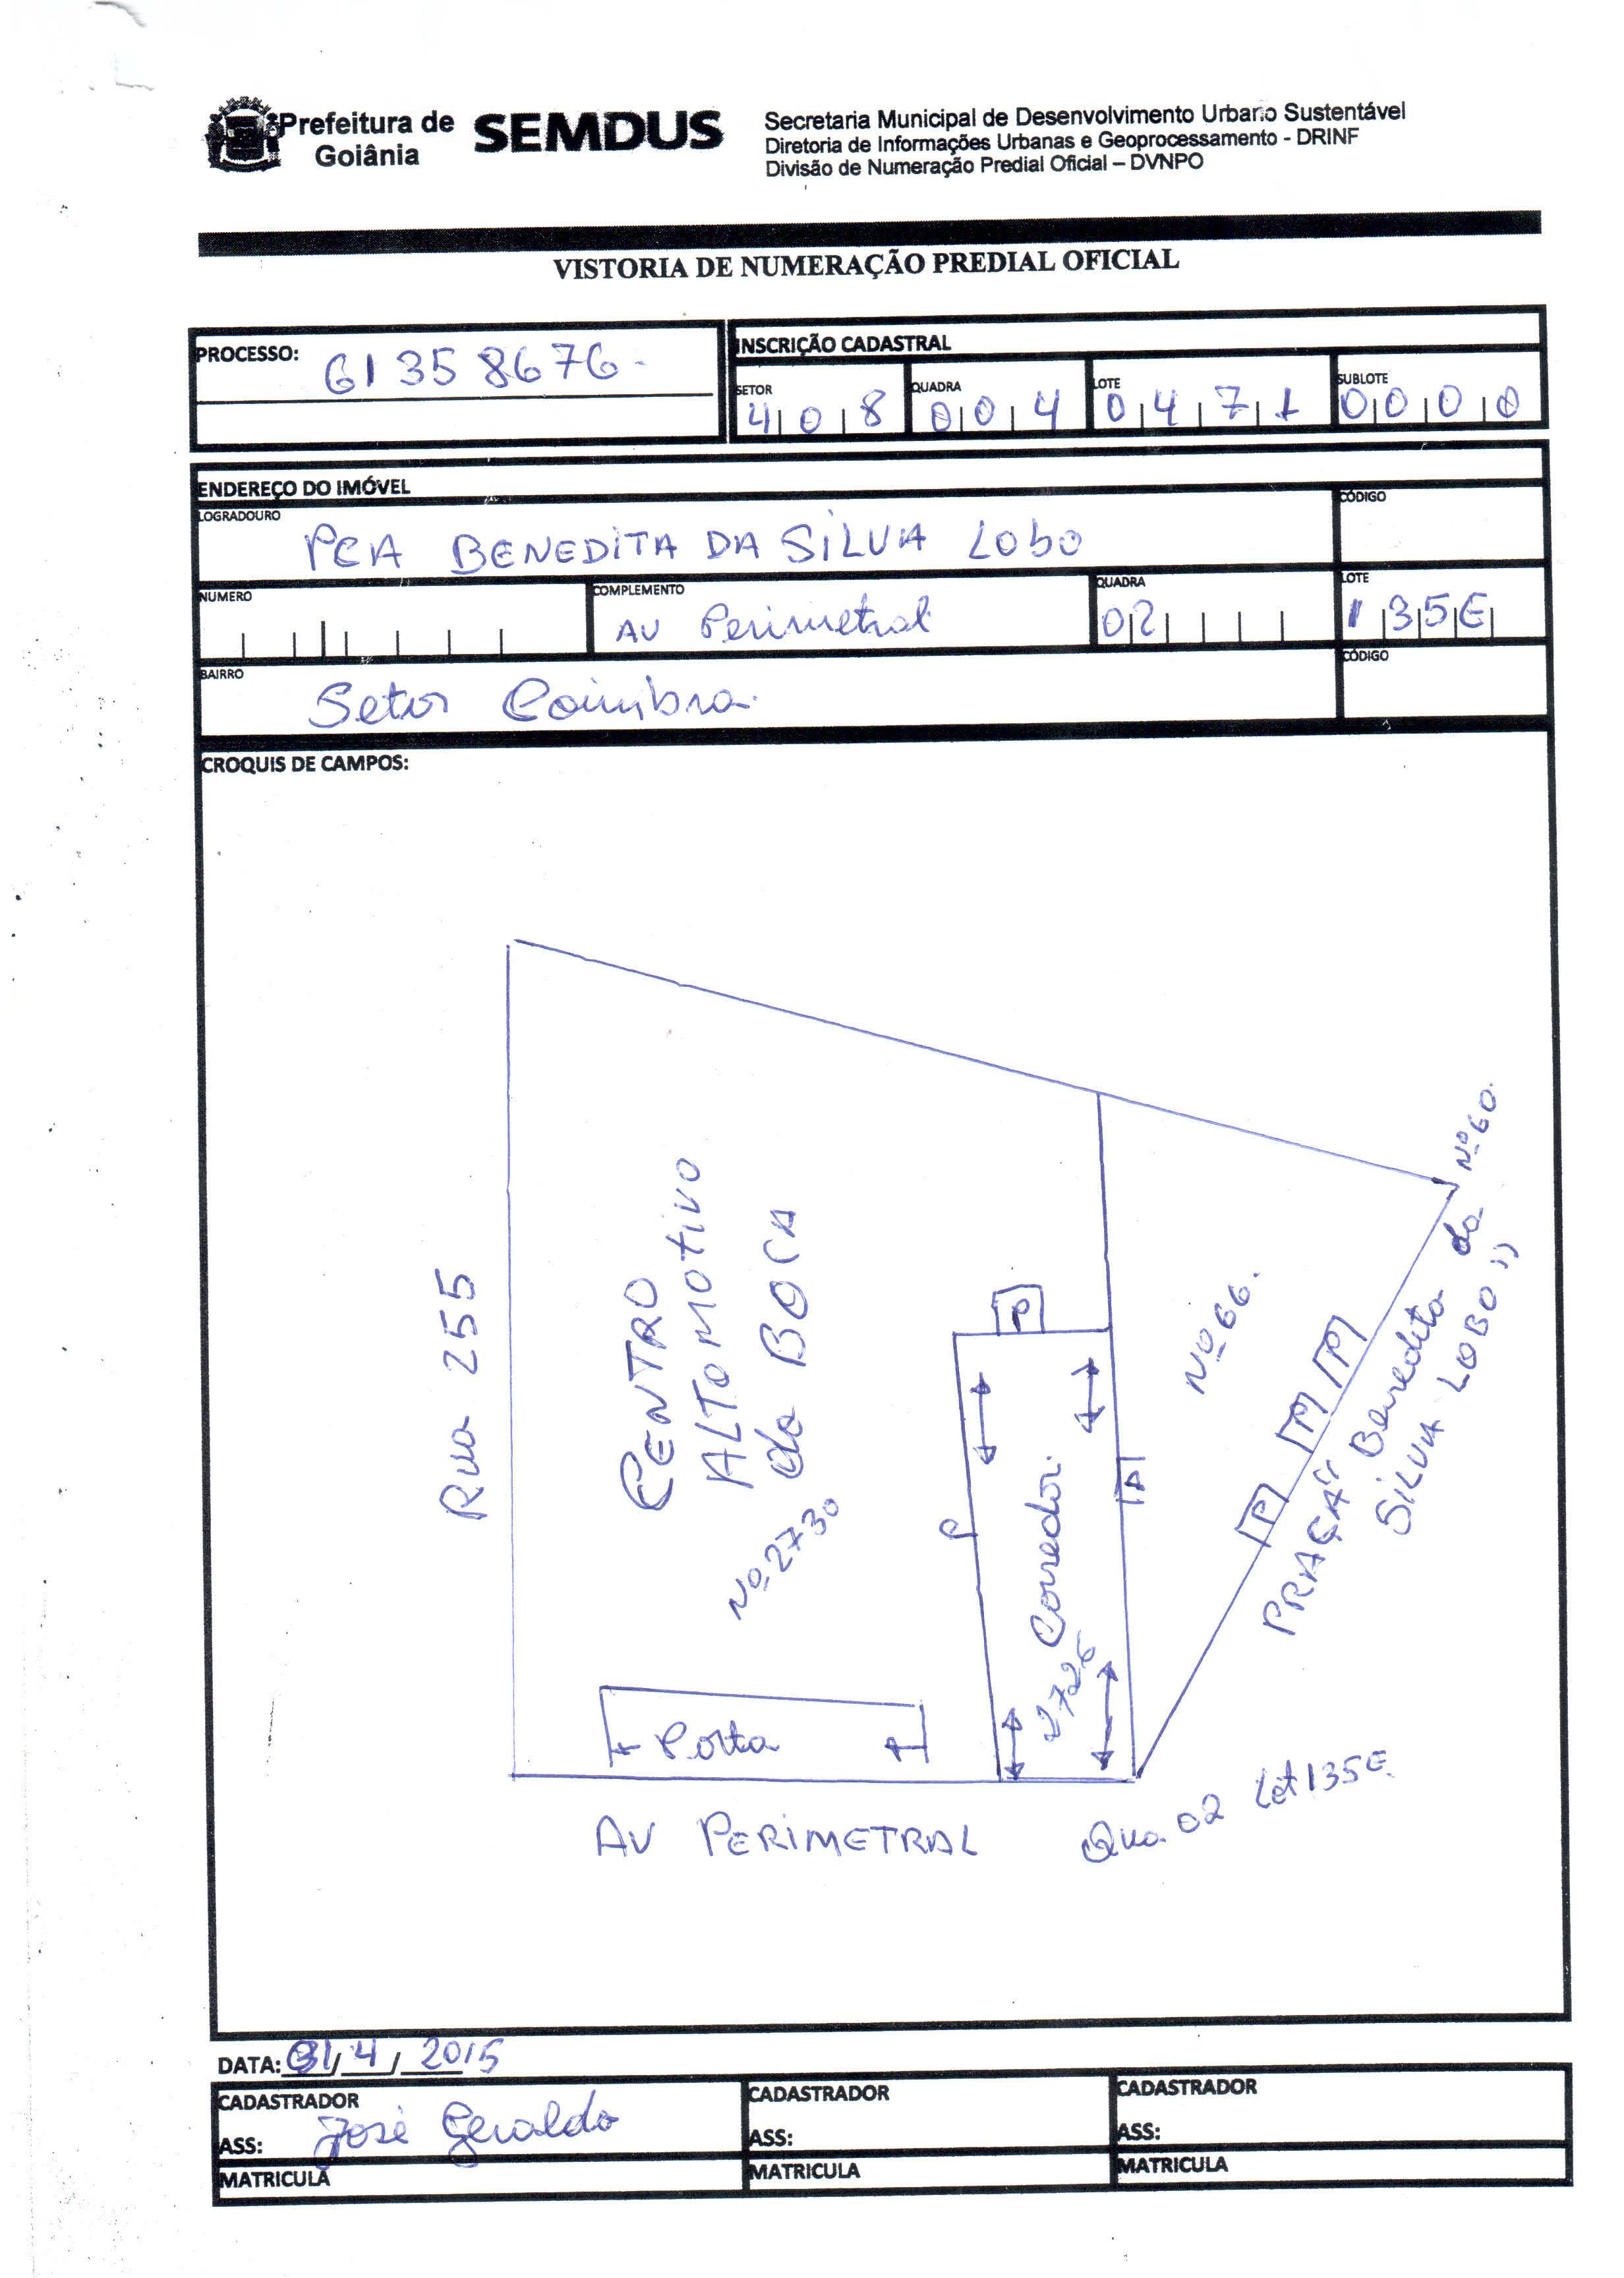 Prefeitura de Goiânia
SEMDUS
Secretaria Municipal de Desenvolvimento Urbano Sustentável
Diretoria de Informações Urbanas e Geoprocessamento - DRINF
Divisão de Numeração Predial Oficial – DVNPO
VISTORIA DE NUMERAÇÃO PREDIAL OFICIAL
PROCESSO: 61358676
INSCRIÇÃO CADASTRAL
SETOR 408 QUADRA 004 LOTE 0471 SUBLOTE 0000
ENDEREÇO DO IMÓVEL
LOGRADOURO PCA BENEDITA DA SILVA LOBO CÓDIGO
NUMERO COMPLEMENTO AV Perimetral QUADRA 02 LOTE 135E
BAIRRO Setor Coimbra CÓDIGO
CROQUIS DE CAMPOS:
Rua 255
CENTRO
ALTOMOTIVO
do BOCA
Nº 2730
P
P
Corredor
2726
P
Nº 66.
Nº 60.
P
P
P
PRAÇA " Benedita da
SILVA LOBO "
Porta
AV PERIMETRAL
Qua 02 Lot 135E
DATA: /4/2015
CADASTRADOR
ASS: José Geraldo
MATRICULA
CADASTRADOR
ASS:
MATRICULA
CADASTRADOR
ASS:
MATRICULA